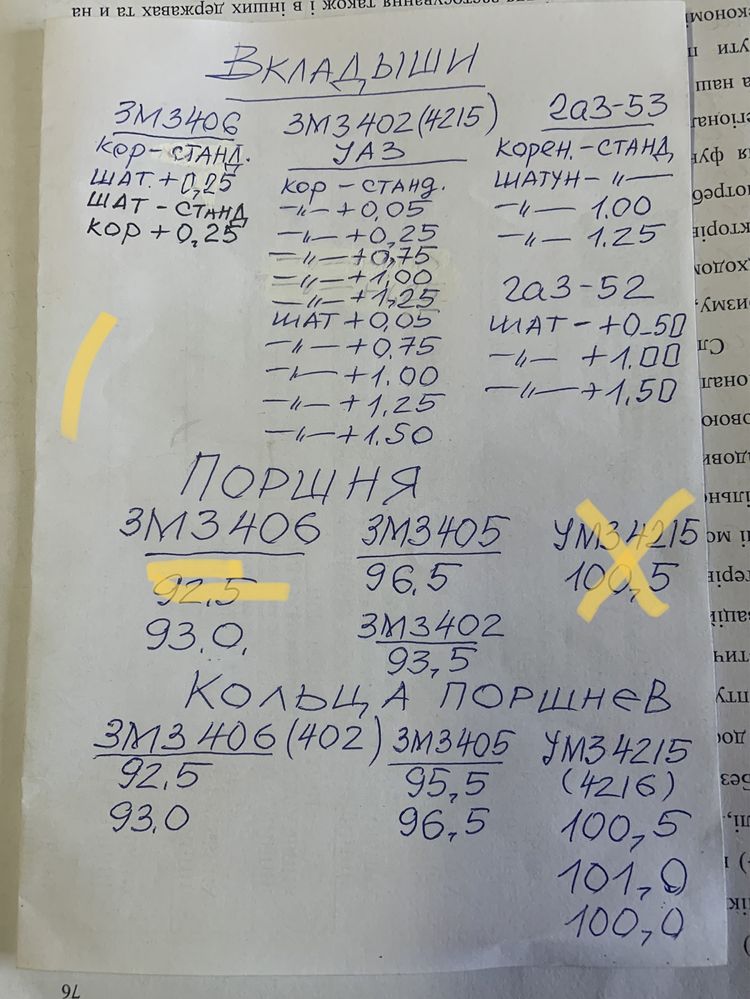 ВКЛАДЫШИ
ЗМЗ406
КОР-СТАНД.
ШАТ.+0,25
ШАТ-СТАНД
КОР+0,25
ЗМЗ402(4215)
УАЗ
КОР-СТАНД.
-〃-+0,05
-〃-+0,25
-〃-+0,75
-〃-+1,00
-〃-+1,25
ШАТ+0,05
-〃-+0,75
-〃-+1.00
-〃-+1,25
-〃-+1.50
ГАЗ-53
КОРЕН.-СТАНД
ШАТУН-〃-
-〃-1.00
-〃-1.25
ГАЗ-52
ШАТ-+0-50
-〃-+1.00
-〃-+1,50
ПОРШНЯ
ЗМЗ406
92.5
93.0.
ЗМЗ405
96.5
ЗМЗ402
93,5
УМЗ4215
100,5
КОЛЬЦА ПОРШНЕВ
ЗМЗ406(402)
92.5
93.0
ЗМЗ405
95,5
96,5
УМЗ4215
(4216)
100,5
101,0
100,0
76